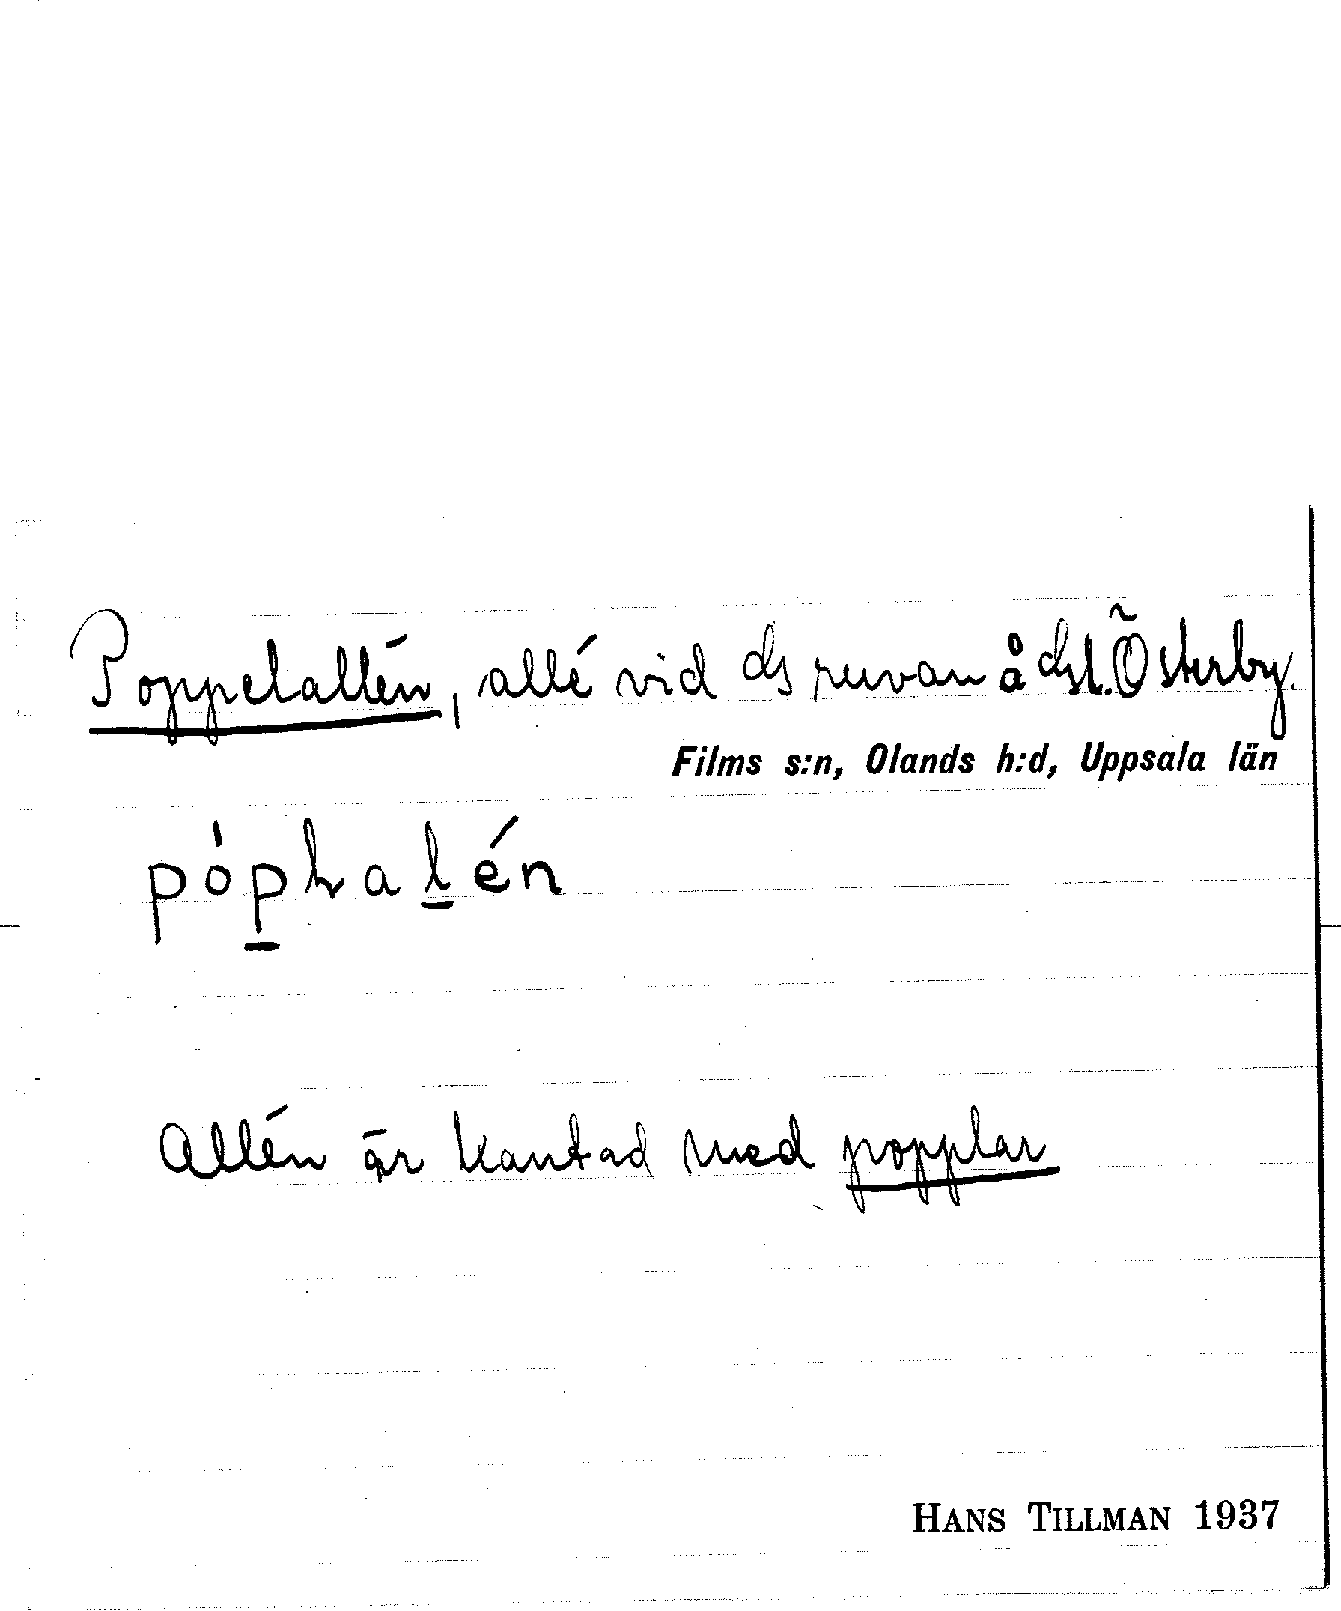 Poppelallén, allé vid ds ruvan å dsl. Österby.
Films s:n, Olands h:d, Uppsala län
póplalén
Allén är kantad med popplar
HANS TILLMAN 1937